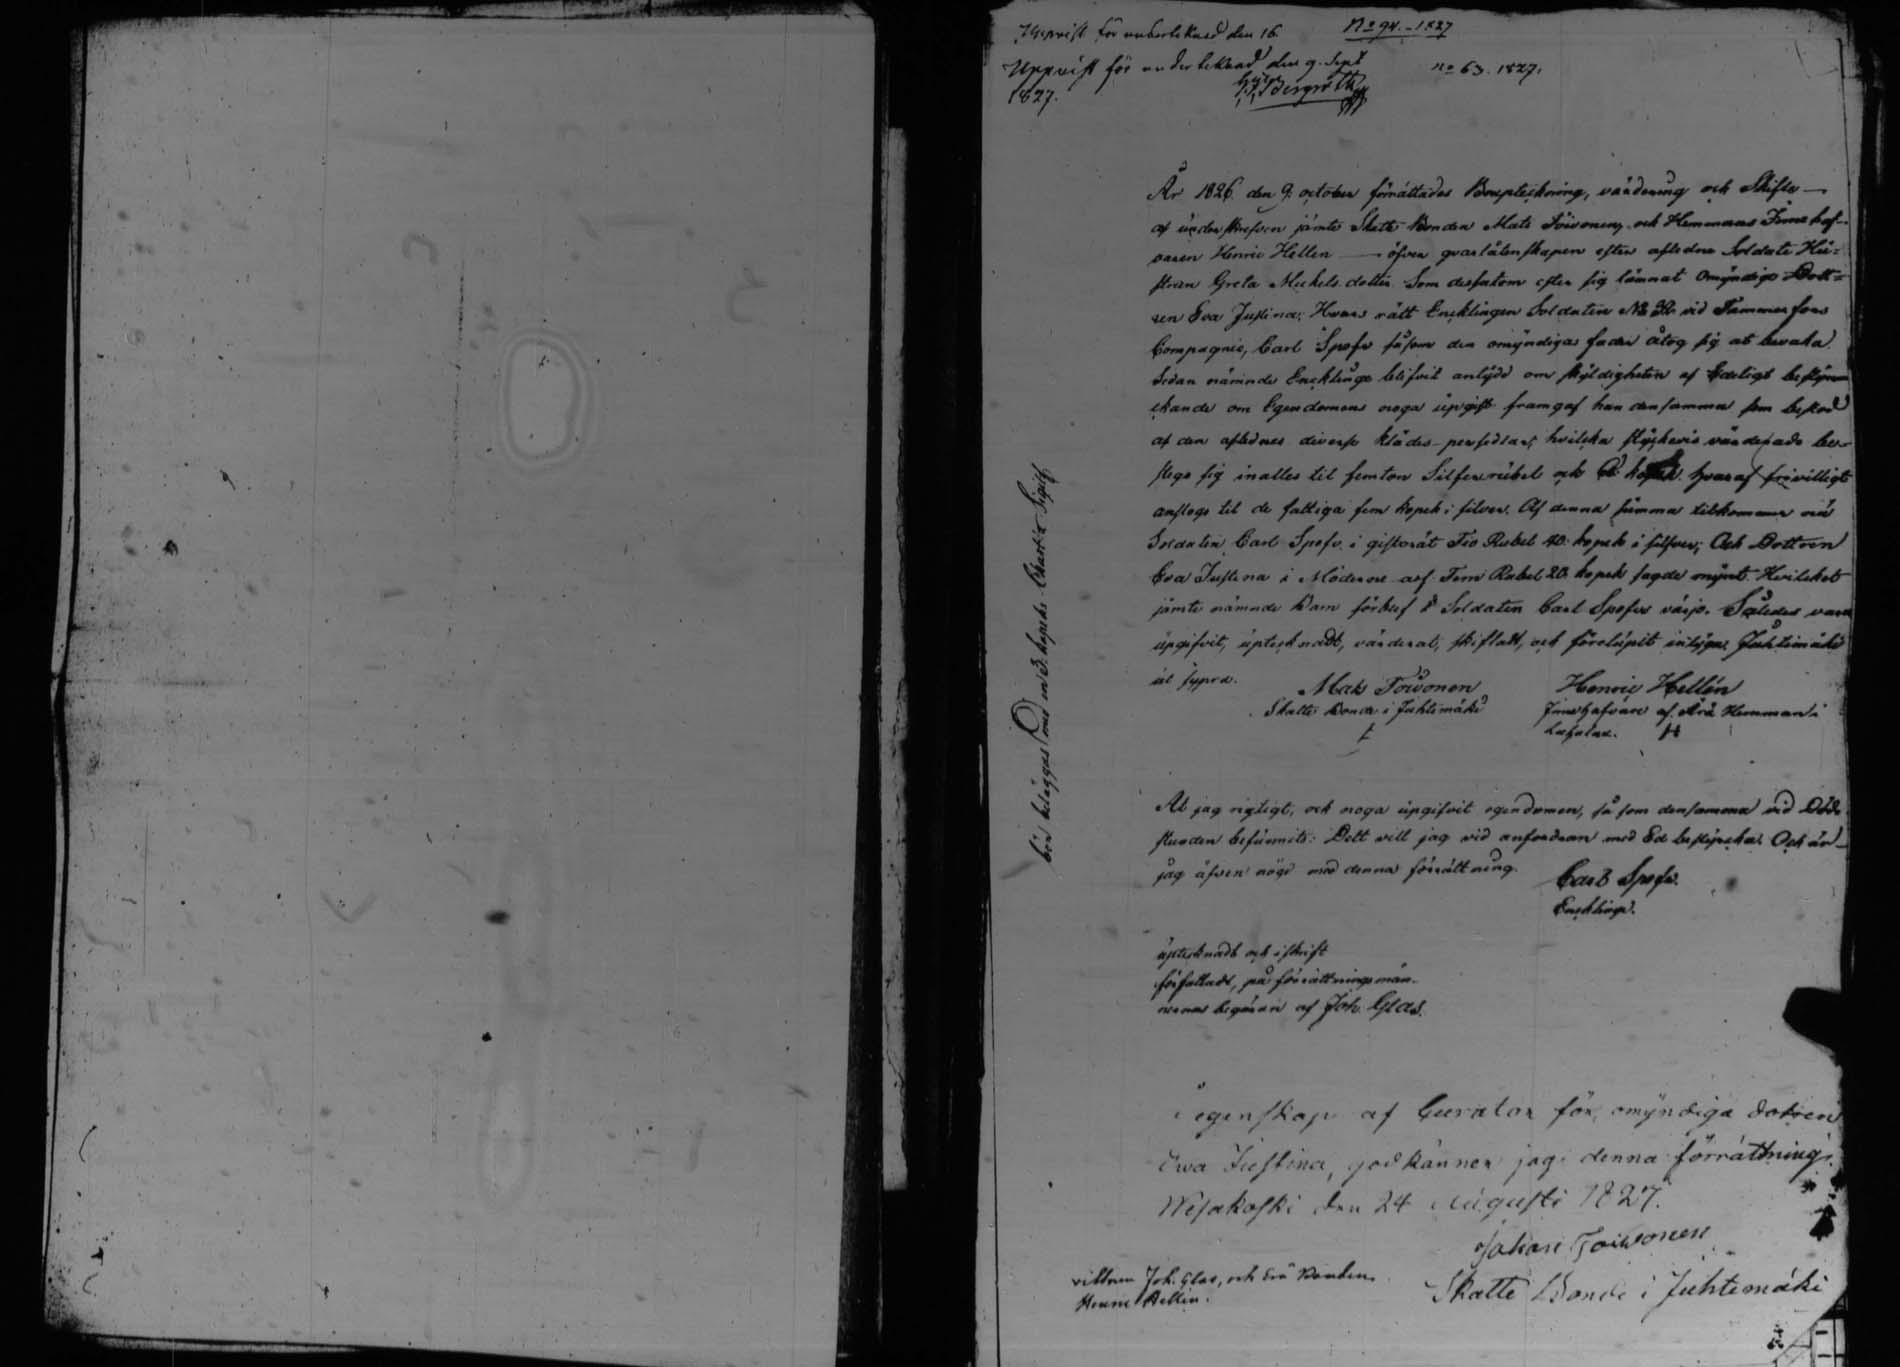 Uppvist för underteknad den 16
No 94. 1827
Uppvist för undertecknad den 9. Sept
1827.
no 63. 1827.
År 1826 den 9 october förrättades Bouptekning, värdering och Skifte
af underskrefven jämte Skatte Bonden Mats Toivonen, och Hemmans Innehaf-
varen Henric Hellen öfver qvarlåtenskapen efter aflidne Soldats Hu-
strun Greta Michels dotter. Som dessutom efter sig lämnat omyndige Dott-
ren Eva Justina; Hvars rätt Encklingen Soldaten No 32 vid Tammerfors
Compagnie, Carl Spofv såsom den omyndigas fader åtog sig at bevaka.
Sedan nämnde Encklinge blifvit antydd om skyldigheten af Edeligt bestyr-
ckande om Egendomens noga upgift framgaf han densamma som bestod
af den aflednes diverse klädes-persedlar, hvilcka styckevis värderade be-
stego sig inalles til femton Silfverrubel och kopek hvaraf frivilligt
anslogs til de fattiga fem kopek i silver. Af denna summa tilkommer nu
Soldaten Carl Spofv i giftorätt Tio Rubel 40 kopek i silfver; Och Dottren
Eva Justina i Möderne arf Fem Rubel 20 kopek sagde mynt. Hvilcket
jämte nämnde Barn förblef i Soldaten Carl Spofvs värjo. Således vara
upgifvit, uptecknadt, värderat, skiftadt, och förelupit intygas Juhtimäki
ut supra.
Mats Toivonen
Skatte Bonde i Juhtimäki
Henric Hellén
Innehafvare af Arä Hemman i
H
At jag rigtigt, och noga upgifvit egendomen, så som densamma vid Döds
stunden befunnits: Dett vill jag vid anfordran med Ed bestyrcka. Och är
jag äfven nögd med denna förrättning.
Carl Spofv.
Encklinge.
uptecknadt och i skrift
författadt, på förrättningsmän-
nernas begäran af Joh. Glas.
I egenskap af Curator för omyndiga dotren
Ewa Justina, godkänner jag denna förrättning.
Wesakoski den 24 Augusti 1827.
Johan Toiwonen
Skatte Bonde i Juhtimäki
vittnen Joh. Glas, och Bonden
Henric Hellen.
bör beläggas med en 3. kopeks Charta Sigill